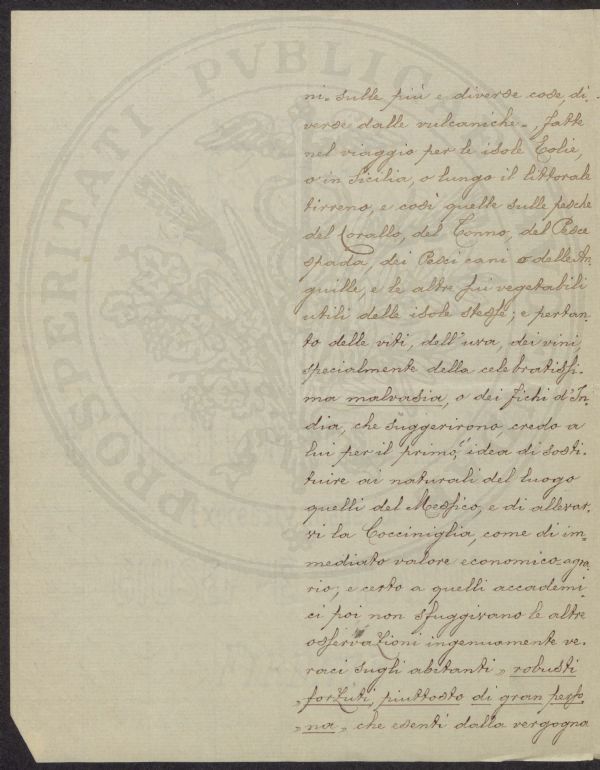 PROSPERITATI PVBLIC
ni - sulle più e diverse cose, di-
verse dalle vulcaniche - fatte
nel viaggio per le isole Eolie,
o in Sicilia, o lungo il littorale
tirreno, e così quelle sulle pesche
del Corallo, del Tonno, del Pesce
spada, dei Pesci cani o delle An-
guille, e le altre sui vegetabili
utili delle isole stesse; e pertan-
to delle viti, dell'uva, dei vini,
specialmente della celebratissi-
ma malvasia, o dei fichi d'In-
dia, che suggerirono, credo a
lui per il primo, l'idea di sosti-
tuire ai naturali del luogo
quelli del Messico, e di allevar-
vi la Cocciniglia, come di im-
mediato valore economico-agra-
rio; e certo a quelli accademi-
ci poi non sfuggivano le altre
osservazioni ingenuamente ve-
raci sugli abitanti „ robusti
„ forzuti, piuttosto di gran perso-
„ na „ che esenti dalla vergogna